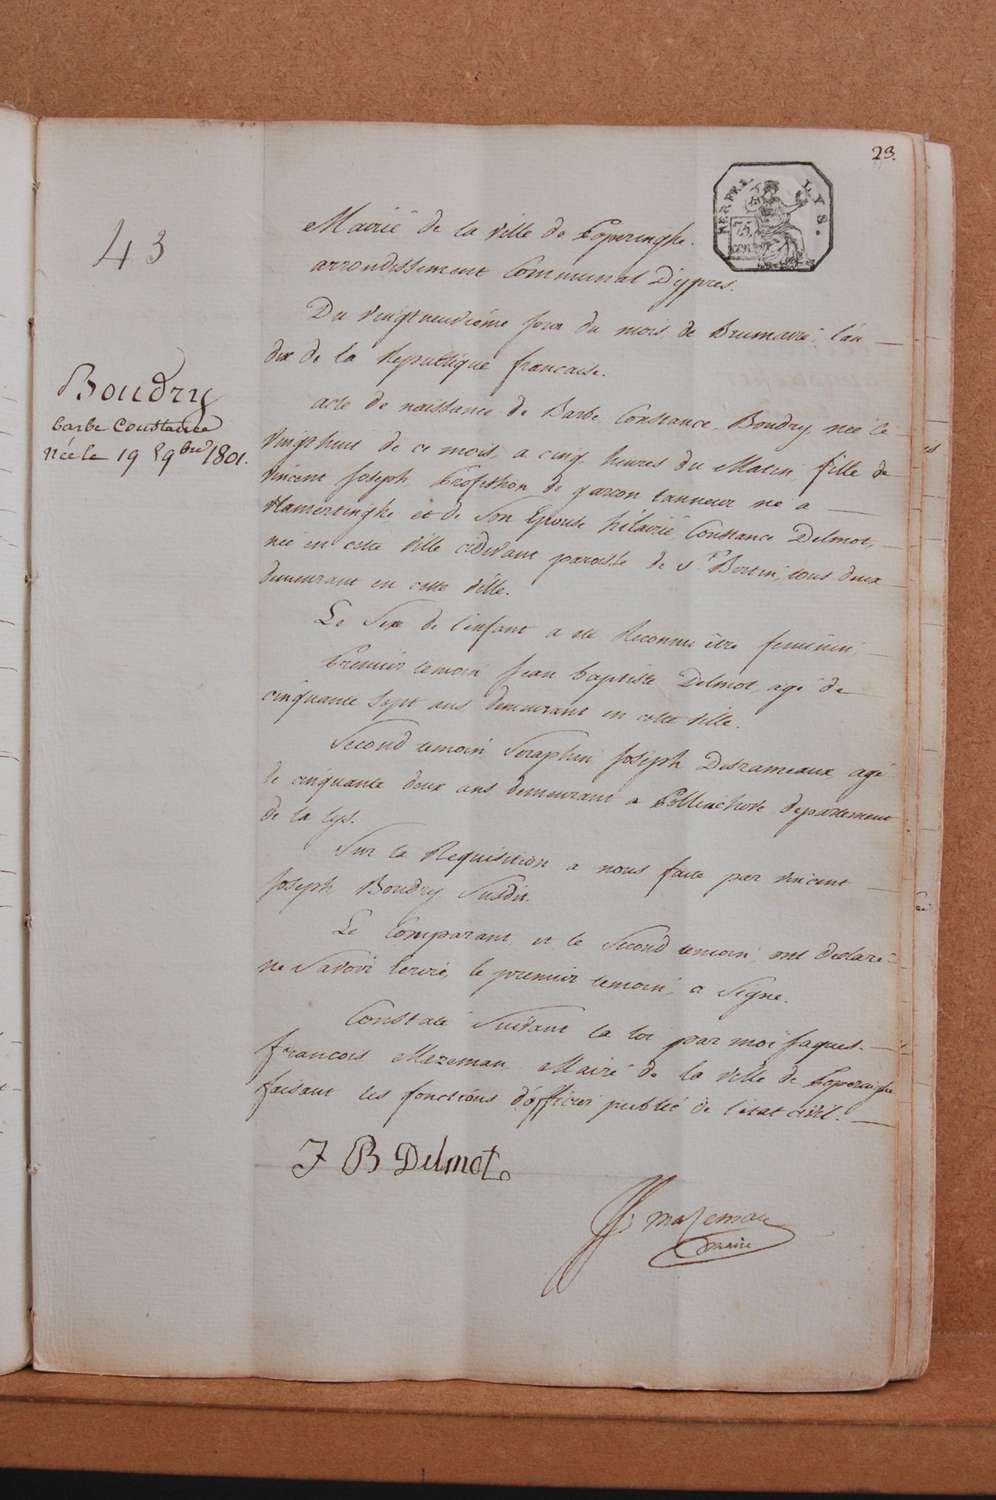 23.
REP. FRA.
LYS.
75
43
Mairie de la ville de Poperinghe.
arrondissement Communal D'ypres.
Du vingtneuvième jour du mois de Brumaire, l'an
dix de la Republique francaise.
Boudry
barbe Constance
Née le 19 9bre 1801.
acte de naissance de Barbe Constance Boudry, née le
vingt huit de ce mois, a cinq heures du Matin, fille de
vincent Joseph Profession de garcon tanneur né a
vlamertinghe et de Son Epouse hélairie Constance Delmot,
née en cette ville cidevant paroisse de St Bertin, tous deux
demeurant en cette ville.
Le Sexe de l'infant a ete Reconnu être feminin
Premier temoin Jean baptiste Delmot, agé de
cinquante Sept ans demeurant en cette ville.
Second temoin Seraphin Joseph Desrameaux agé
de cinquante deux ans demeurant a Pollinchove departement
de la lys.
Sur la Requisition a nous faite par vincent
Joseph Boudry Susdit.
Le Comparant et le Second temoin, ont declaré
ne Savoir Ecrire, le premier temoin a Signe.
Constaté Suivant la loi par moi Jaques
francois Mazeman Maire de la ville de Poperinghe
faisant les fonctions d'officier public de l'état civil.
J B Delmot
Jf mazeman
maire